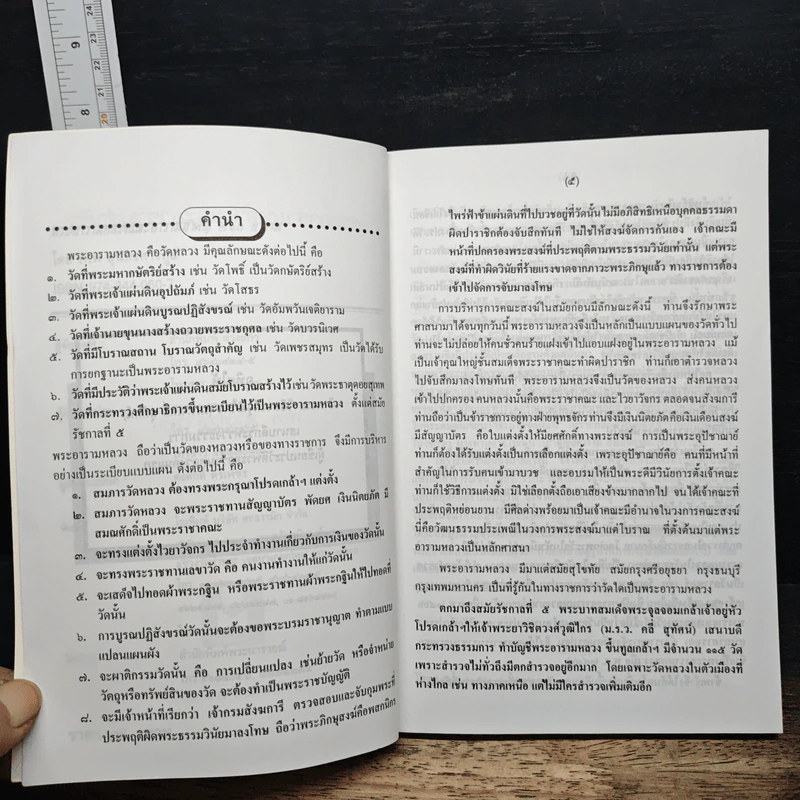 คำนำ
พระอารามหลวง คือวัดหลวง มีคุณลักษณะดังต่อไปนี้ คือ
๑. วัดที่พระมหากษัตริย์สร้าง เช่น วัดโพธิ์ เป็นวัดกษัตริย์สร้าง
๒. วัดที่พระเจ้าแผ่นดินอุปถัมภ์ เช่น วัดโสธร
๓. วัดที่พระเจ้าแผ่นดินบูรณปฏิสังขรณ์ เช่น วัดอัมพวันเจติยาราม
๔. วัดที่เจ้านายขุนนางสร้างถวายพระราชกุศล เช่น วัดบวรนิเวศ
๕. วัดที่มีโบราณสถาน โบราณวัตถุสำคัญ เช่น วัดเพชรสมุทร เป็นวัดได้รับ
การยกฐานะเป็นพระอารามหลวง
๖. วัดที่มีประวัติว่าพระเจ้าแผ่นดินสมัยโบราณสร้างไว้ เช่น วัดพระธาตุดอยสุเทพ
๗. วัดที่กระทรวงศึกษาธิการขึ้นทะเบียนไว้เป็นพระอารามหลวง ตั้งแต่สมัย
รัชกาลที่ ๕
พระอารามหลวง ถือว่าเป็นวัดของหลวงหรือของทางราชการ จึงมีการบริหาร
อย่างเป็นระเบียบแบบแผน ดังต่อไปนี้ คือ
๑. สมภารวัดหลวง ต้องทรงพระกรุณาโปรดเกล้าฯ แต่งตั้ง
๒. สมภารวัดหลวง จะพระราชทานสัญญาบัตร พัดยศ เงินนิตยภัต มี
สมณศักดิ์เป็นพระราชาคณะ
๓. จะทรงแต่งตั้งไวยาวัจกร ไปประจำทำงานเกี่ยวกับการเงินของวัดนั้น
๔. จะทรงพระราชทานเลขาวัด คือ คนงานทำงานให้แก่วัดนั้น
๕. จะเสด็จไปทอดผ้าพระกฐิน หรือพระราชทานผ้าพระกฐินให้ไปทอดที่
วัดนั้น
๖. การบูรณปฏิสังขรณ์วัดนั้นจะต้องขอพระบรมราชานุญาต ทำตามแบบ
แปลนแผนผัง
๗. จะผาติกรรมวัดนั้น คือ การเปลี่ยนแปลง เช่นย้ายวัด หรือจำหน่าย
วัตถุหรือทรัพย์สินของวัด จะต้องทำเป็นพระราชบัญญัติ
๘. จะมีเจ้าหน้าที่เรียกว่า เจ้ากรมสังฆการี ตรวจสอบและจับกุมพระที่
ประพฤติผิดพระธรรมวินัยมาลงโทษ ถือว่าพระภิกษุสงฆ์คือพสกนิกร
(๕)
ไพร่ฟ้าข้าแผ่นดินที่ไปบวชอยู่ที่วัดนั้นไม่มีอภิสิทธิ์เหนือบุคคลธรรมดา
ผิดปาราชิกต้องจับสึกทันที ไม่ใช่ให้สงฆ์จัดการกันเอง เจ้าคณะมี
หน้าที่ปกครองพระสงฆ์ที่ประพฤติตามพระธรรมวินัยเท่านั้น แต่พระ
สงฆ์ที่ทำผิดวินัยที่ร้ายแรงขาดจากภาวะพระภิกษุแล้ว ทางราชการต้อง
เข้าไปจัดการจับมาลงโทษ
การบริหารการคณะสงฆ์ในสมัยก่อนมีลักษณะดังนี้ ท่านจึงรักษาพระ
ศาสนามาได้จนทุกวันนี้ พระอารามหลวงจึงเป็นหลักเป็นแบบแผนของวัดทั่วไป
ท่านจะไม่ปล่อยให้คนชั่วคนร้ายแฝงเข้าไปแอบแฝงอยู่ในพระอารามหลวง แม้
เป็นเจ้าคุณใหญ่ชั้นสมเด็จพระราชาคณะทำผิดปาราชิก ท่านก็เอาตำรวจหลวง
ไปจับสึกมาลงโทษทันที พระอารามหลวงจึงเป็นวัดของหลวง ส่งคนหลวง
เข้าไปปกครอง คนหลวงนั้นคือพระราชาคณะ และไวยาวัจกร ตลอดจนสังฆการี
ท่านถือว่าเป็นข้าราชการอยู่ทางฝ่ายพุทธจักร ท่านจึงมีเงินนิตยภัตคือเงินเดือนสงฆ์
มีสัญญาบัตร คือใบแต่งตั้งให้มียศศักดิ์ทางพระสงฆ์ การเป็นพระอุปัชฌาย์
ท่านก็ต้องได้รับแต่งตั้งเป็นการเลือกแต่งตั้ง เพราะอุปัชฌาย์คือ คนที่มีหน้าที่
สำคัญในการรับคนเข้ามาบวช และอบรมให้เป็นพระดีมีวินัยการตั้งเจ้าคณะ
ท่านก็ใช้วิธีการแต่งตั้ง มิใช่เลือกตั้งถือเอาเสียงข้างมากลากไป จนได้เจ้าคณะที่
ประพฤติหย่อนยาน มีศีลด่างพร้อยมาเป็นเจ้าคณะมีอำนาจในวงการคณะสงฆ์
นี่คือวัฒนธรรมประเพณีในวงการพระสงฆ์มาแต่โบราณ ที่ตั้งต้นมาแต่พระ
อารามหลวงเป็นหลักศาสนา
พระอารามหลวง มีมาแต่สมัยสุโขทัย สมัยกรุงศรีอยุธยา กรุงธนบุรี
กรุงเทพมหานคร เป็นที่รู้กันในทางราชการว่าวัดใดเป็นพระอารามหลวง
ตกมาถึงสมัยรัชกาลที่ ๕ พระบาทสมเด็จพระจุลจอมเกล้าเจ้าอยู่หัว
โปรดเกล้าฯให้เจ้าพระยาวิชิตวงศ์วุฒิไกร (ม.ร.ว. คลี่ สุทัศน์) เสนาบดี
กระทรวงธรรมการ ทำบัญชีพระอารามหลวง ขึ้นทูลเกล้าฯ มีจำนวน ๑๑๕ วัด
เพราะสำรวจไม่ทั่วถึงมีตกสำรวจอยู่อีกมาก โดยเฉพาะวัดหลวงในตัวเมืองที่
ห่างไกล เช่น ทางภาคเหนือ แต่ไม่มีใครสำรวจเพิ่มเติมอีก